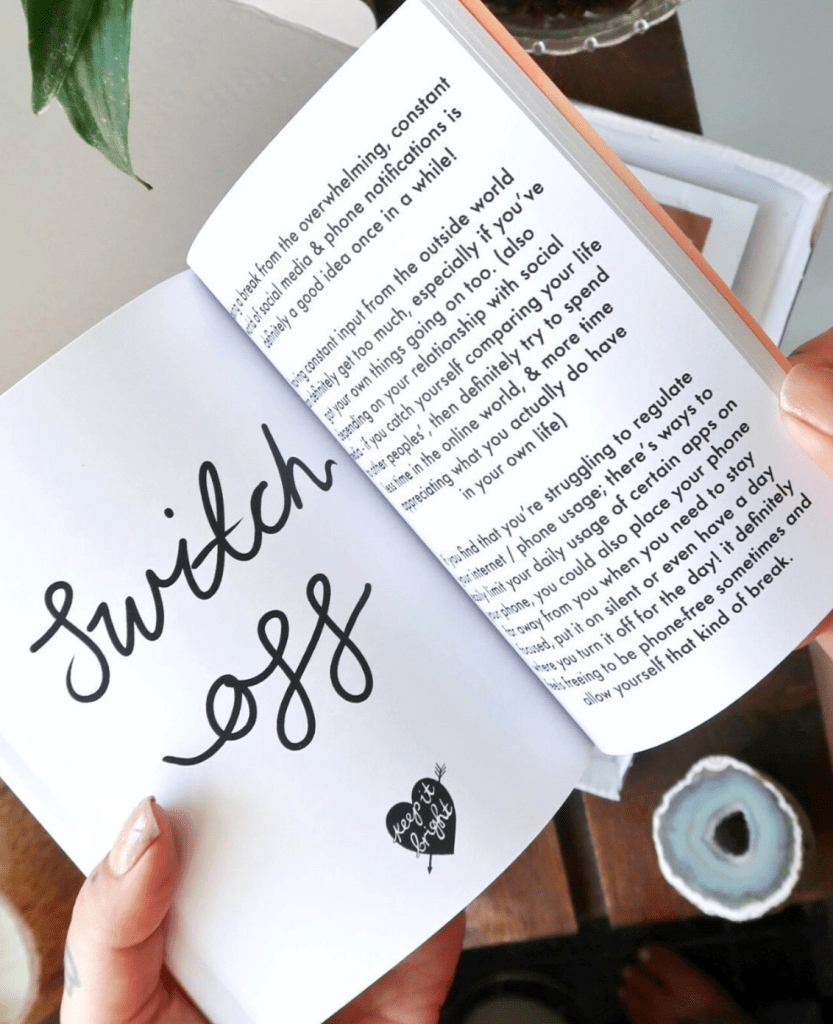 switch
off
keep it
bright
a break from the overwhelming, constant
of social media & phone notifications is
definitely a good idea once in a while!
constant input from the outside world
definitely get too much, especially if you've
got your own things going on too. (also
depending on your relationship with social
if you catch yourself comparing your life
other peoples', then definitely try to spend
less time in the online world, & more time
appreciating what you actually do have
in your own life)
if you find that you're struggling to regulate
your internet / phone usage; there's ways to
limit your daily usage of certain apps on
your phone, you could also place your phone
far away from you when you need to stay
focused, put it on silent or even have a day
where you turn it off for the day! it definitely
feels freeing to be phone-free sometimes and
allow yourself that kind of break.